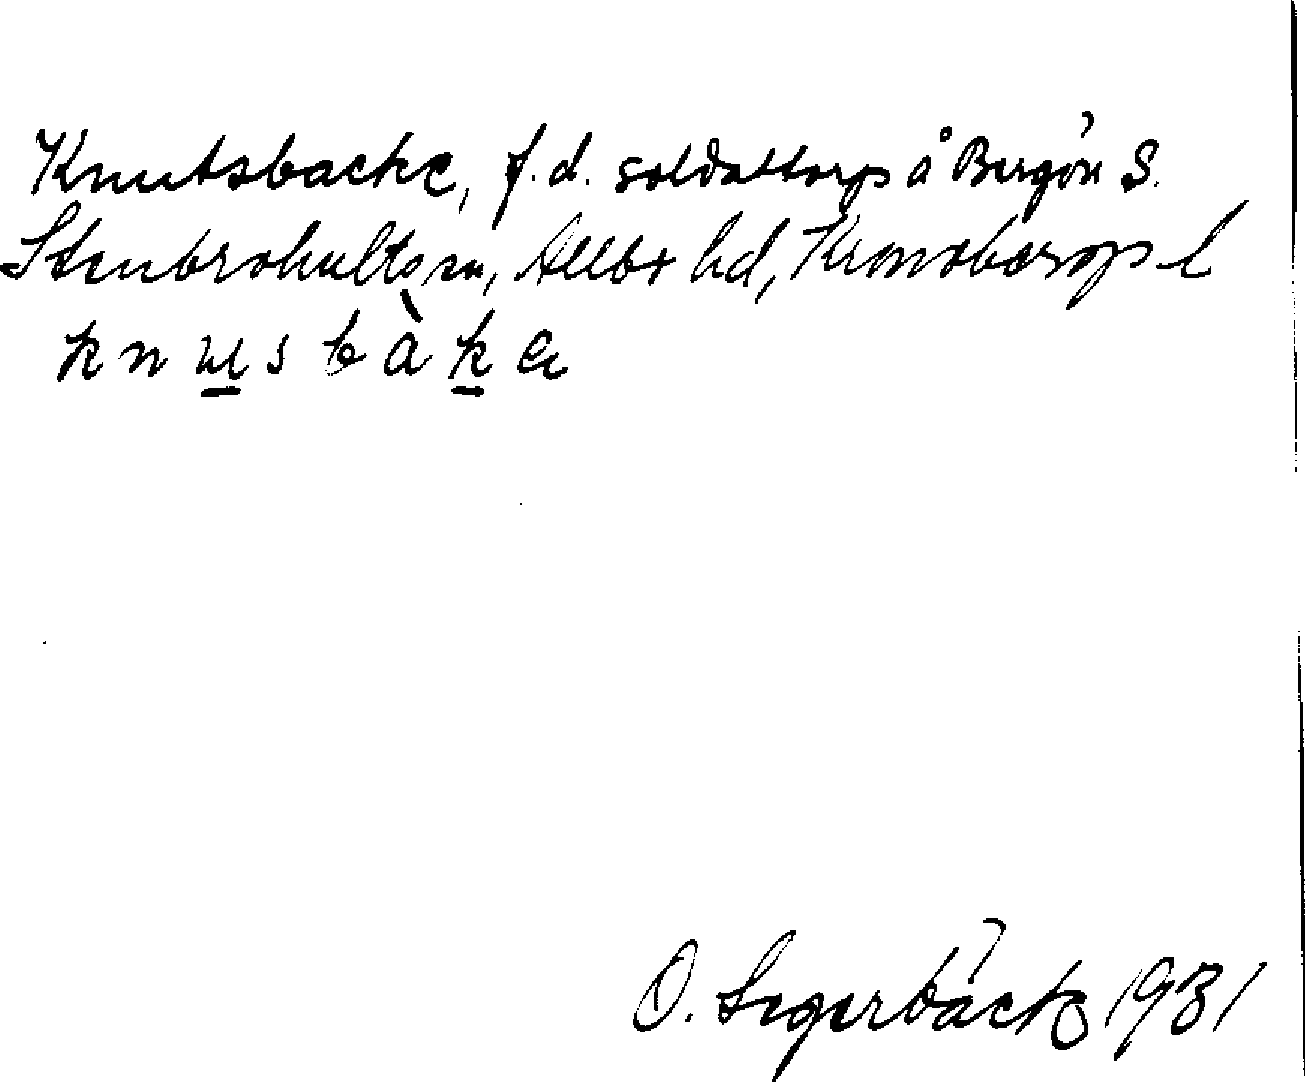 Knutsbacke, f.d. soldattorp å Bergön S.
Stenbrohults sn, Allbo hd, Kronobergs l
k n u s b à k e
O. Segerbäck 1931